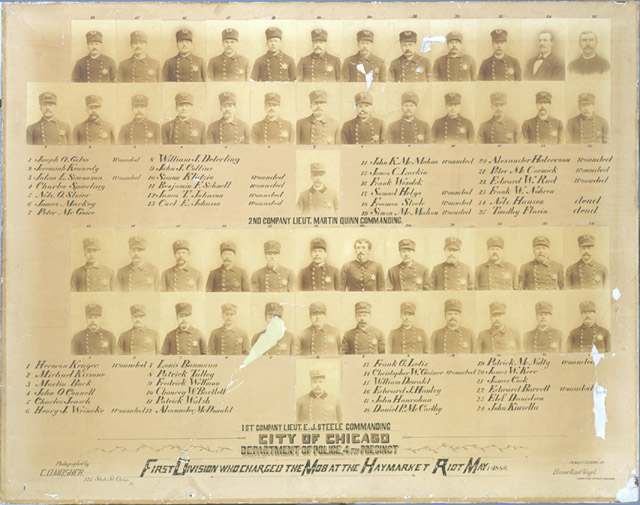 1 Joseph A. Gilso wounded
2 Jeremiah Kennedy
3 Julius L. Simonson wounded
4 Charles Spierling
5 Nils A. Slater
6 James Mackey
7 Peter Mc Guire
8 William J. Deterling
9 John J. Collins
10 Simon Klidzis wounded
11 Benjamin F. Schnell wounded
12 James T. Johnson wounded
13 Carl E. Johnson wounded
14 John K. Mc Mahon wounded
15 James C. Larkin
16 Frank Weindek
17 Samuel Hilgo
18 Freeman Steele wounded
19 Simon Mc Mahon wounded
20 Alexander Halvorson wounded
21 Peter Mc Cormick wounded
22 Edward W. Ruel wounded
23 Frank W. Nihren
24 Nels Hansen dead
25 Timothy Flavin dead
2ND COMPANY LIEUT. MARTIN QUINN COMMANDING.
1 Herman Kruger wounded
2 Michael Kissane
3 Martin Bock
4 John O'Connell
5 Charles
6 Henry J. Weineke wounded
7 Louis Baumann
8 Patrick Talley
9 Fredrick Wollman
10 Chancey W. Bartlett
11 Patrick Walsh
12 Alexander Mc Donald
13 Frank G.
14 Christopher W. Gainor wounded
15 William Dowdel
16 Edward J. Hanley
17 John Hanrahan
18 Daniel P. Mc Carthy
19 Patrick Mc Nulty wounded
20 James W. Kerr
21 James Cook
22 Edward Barrett wounded
23 Elof Danielson
24 John Kinsella
1ST COMPANY LIEUT. E. J. STEELE COMMANDING
CITY OF CHICAGO
DEPARTMENT OF POLICE, 4TH PRECINCT
FIRST DIVISION WHO CHARGED THE MOB AT THE HAYMARKET RIOT MAY 4-1886.
Photographed by
C. D. MOSHER
125 State St. Chicago